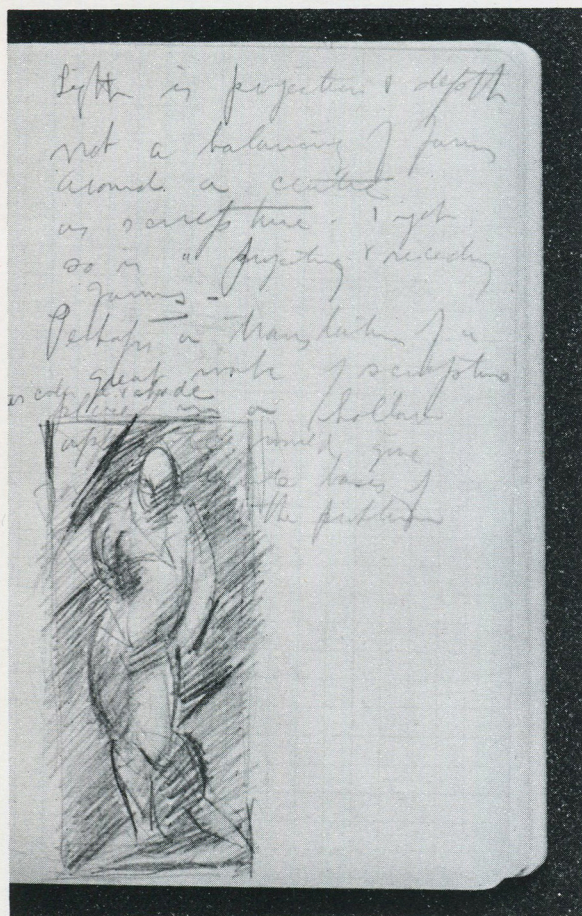 Light is projection & depth
not a balancing of forms
around a centre
as sculpture. I get
so in " projecting & receding
forms -
Perhaps a translation of a
great work of sculpture
in a hollow
would give
basis of
the problem